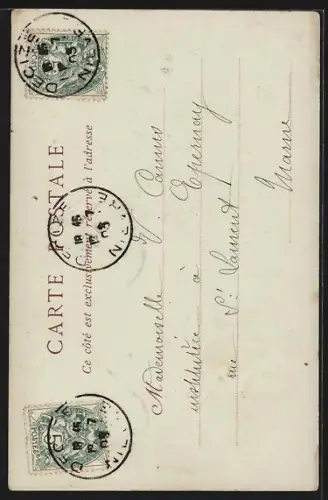 CARTE POSTALE
Ce côté est exclusivement réservé à l'adresse
DECIZE
NIÈVRE
Mademoiselle Y. Camus
institutrice à Epernay
rue St Laurent
Marne